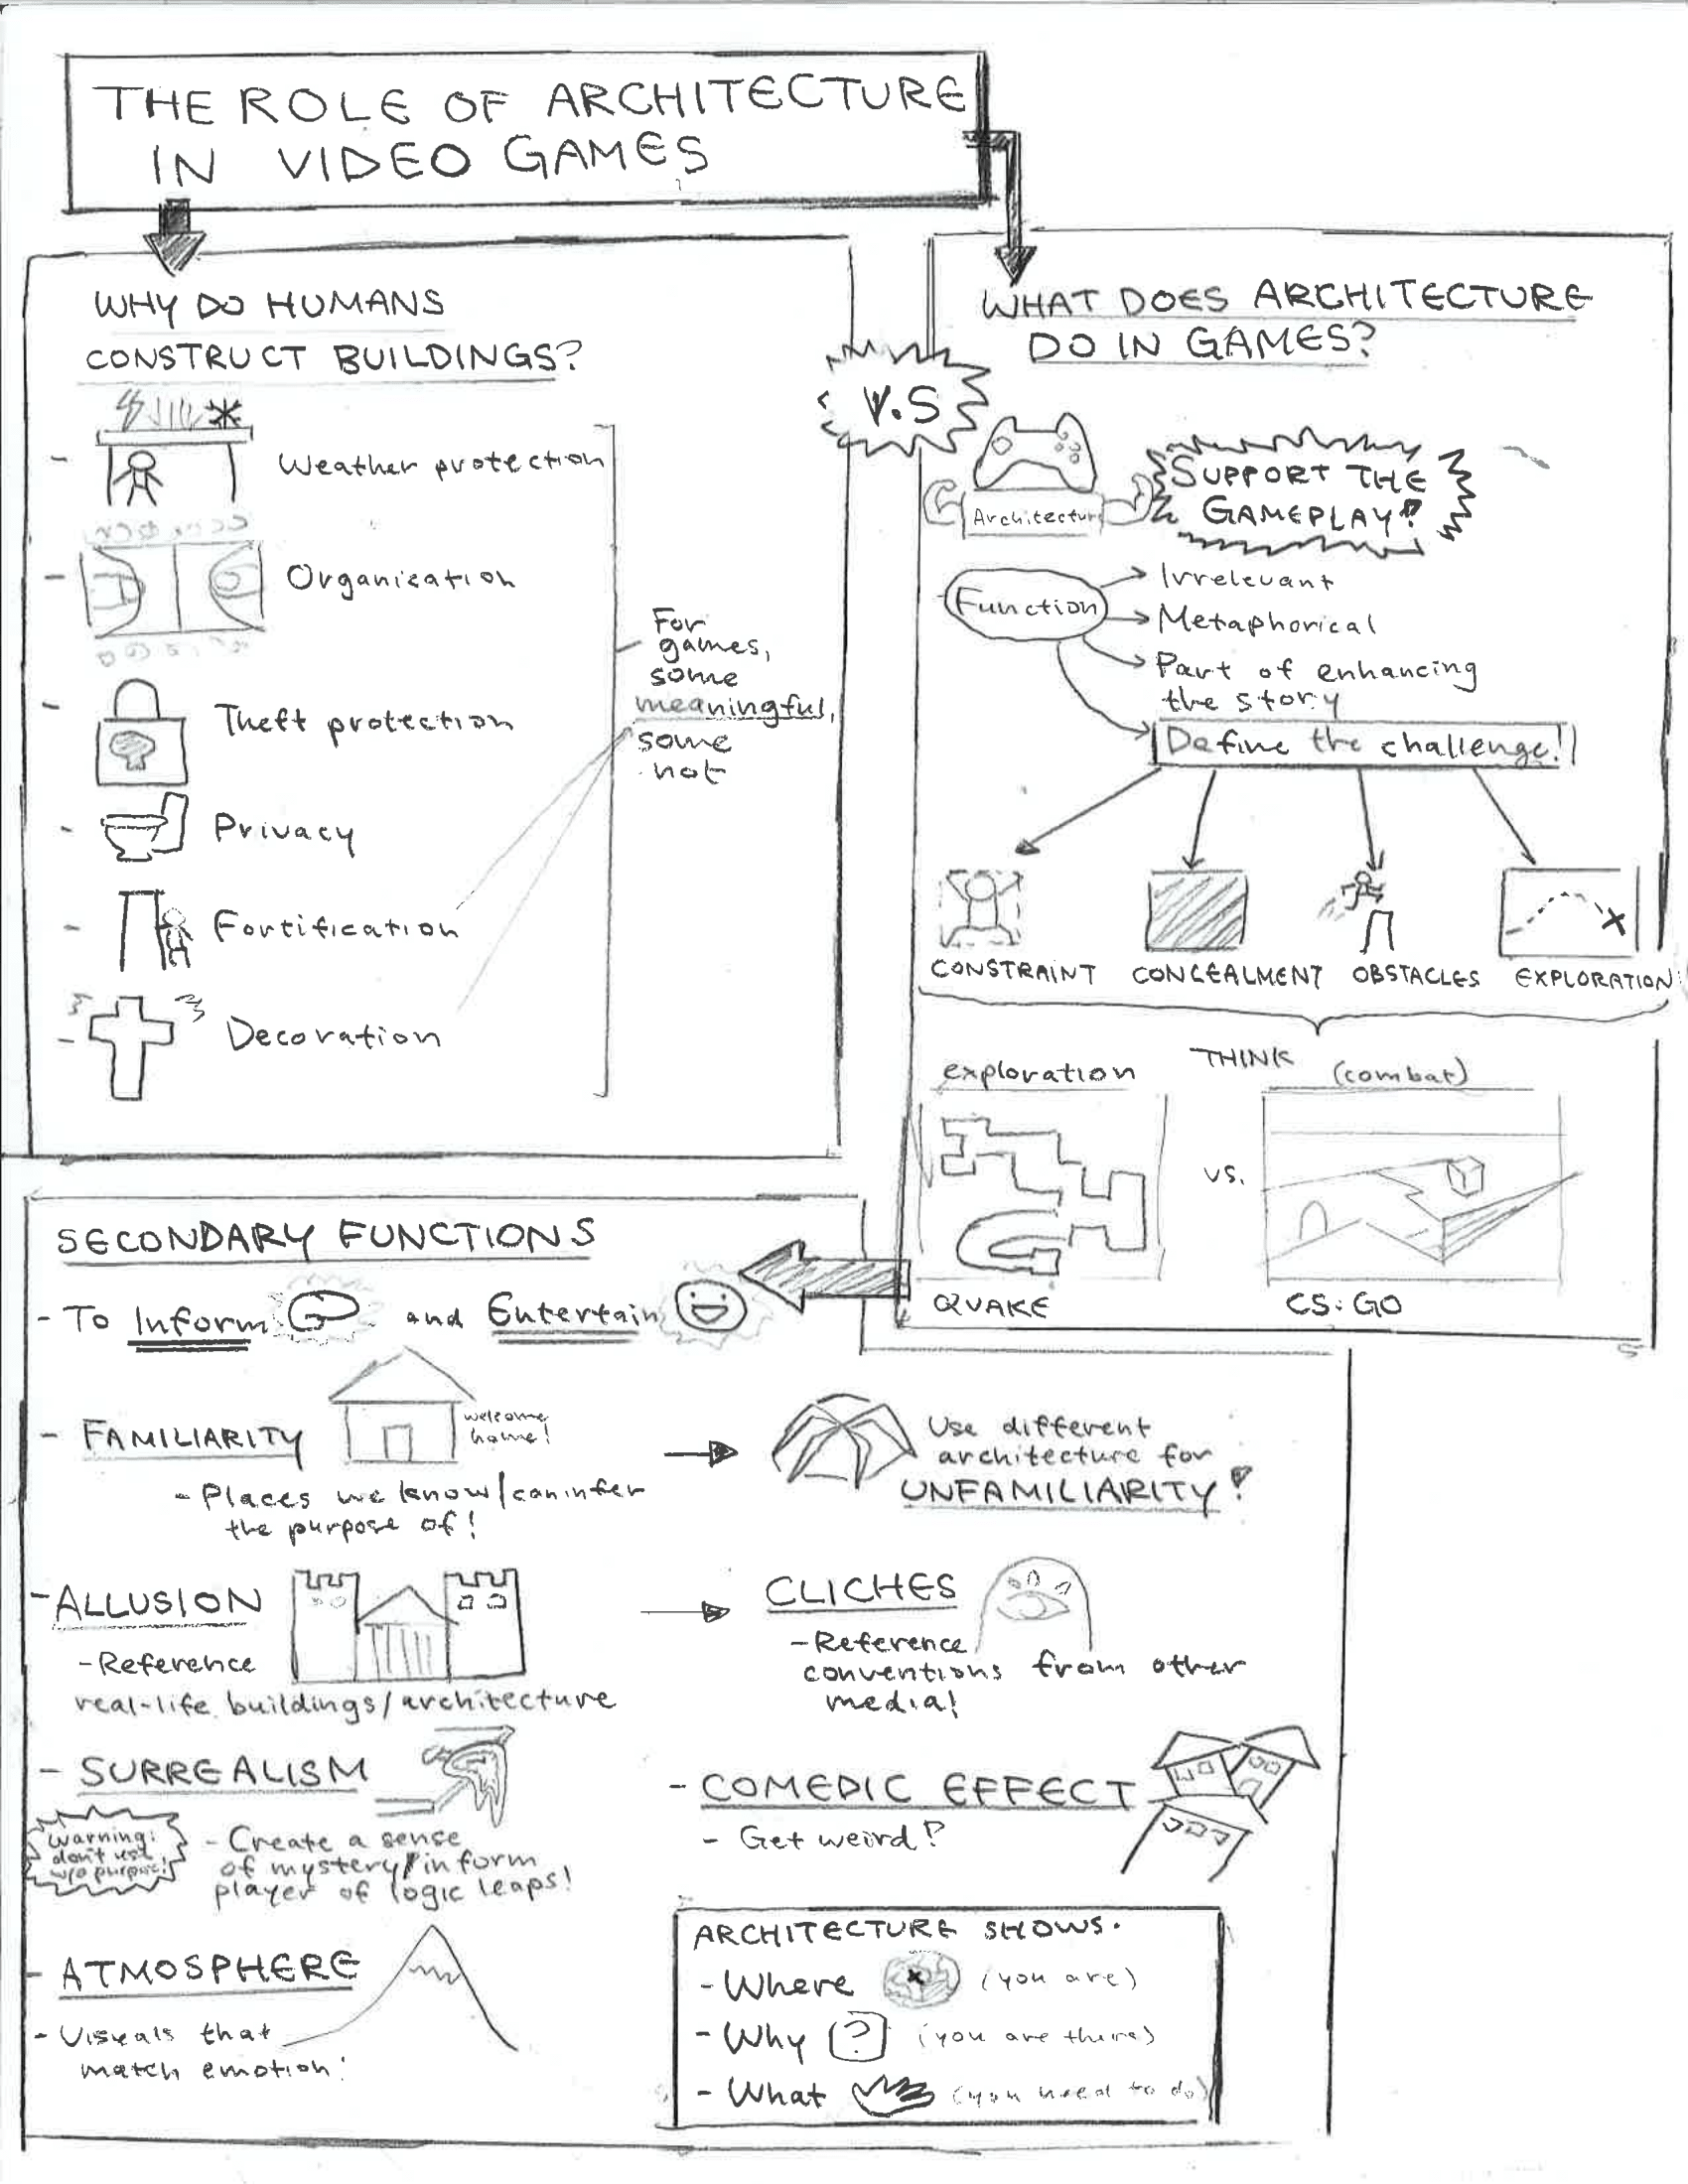 THE ROLE OF ARCHITECTURE
IN VIDEO GAMES
WHY DO HUMANS
CONSTRUCT BUILDINGS?
- Weather protection
- Organization
- Theft protection
- Privacy
- Fortification
- Decoration
For
games,
some
meaningful,
some
not
V.S
WHAT DOES ARCHITECTURE
DO IN GAMES?
Architecture
SUPPORT THE
GAMEPLAY!
Function
Irrelevant
Metaphorical
Part of enhancing
the story
Define the challenge!
CONSTRAINT
CONCEALMENT
OBSTACLES
EXPLORATION
THINK
exploration
(combat)
vs.
QUAKE
CS:GO
SECONDARY FUNCTIONS
- To Inform and Entertain
- FAMILIARITY
welcome
home!
- Places we know/can infer
the purpose of!
Use different
architecture for
UNFAMILIARITY!
- ALLUSION
- Reference
real-life buildings/architecture
CLICHES
- Reference
conventions from other
media!
- SURREALISM
Warning:
don't use
w/o purpose!
- Create a sense
of mystery/inform
player of logic leaps!
- COMEDIC EFFECT
- Get weird!
- ATMOSPHERE
- Visuals that
match emotion!
ARCHITECTURE SHOWS.
- Where (you are)
- Why ? (you are there)
- What (you need to do)